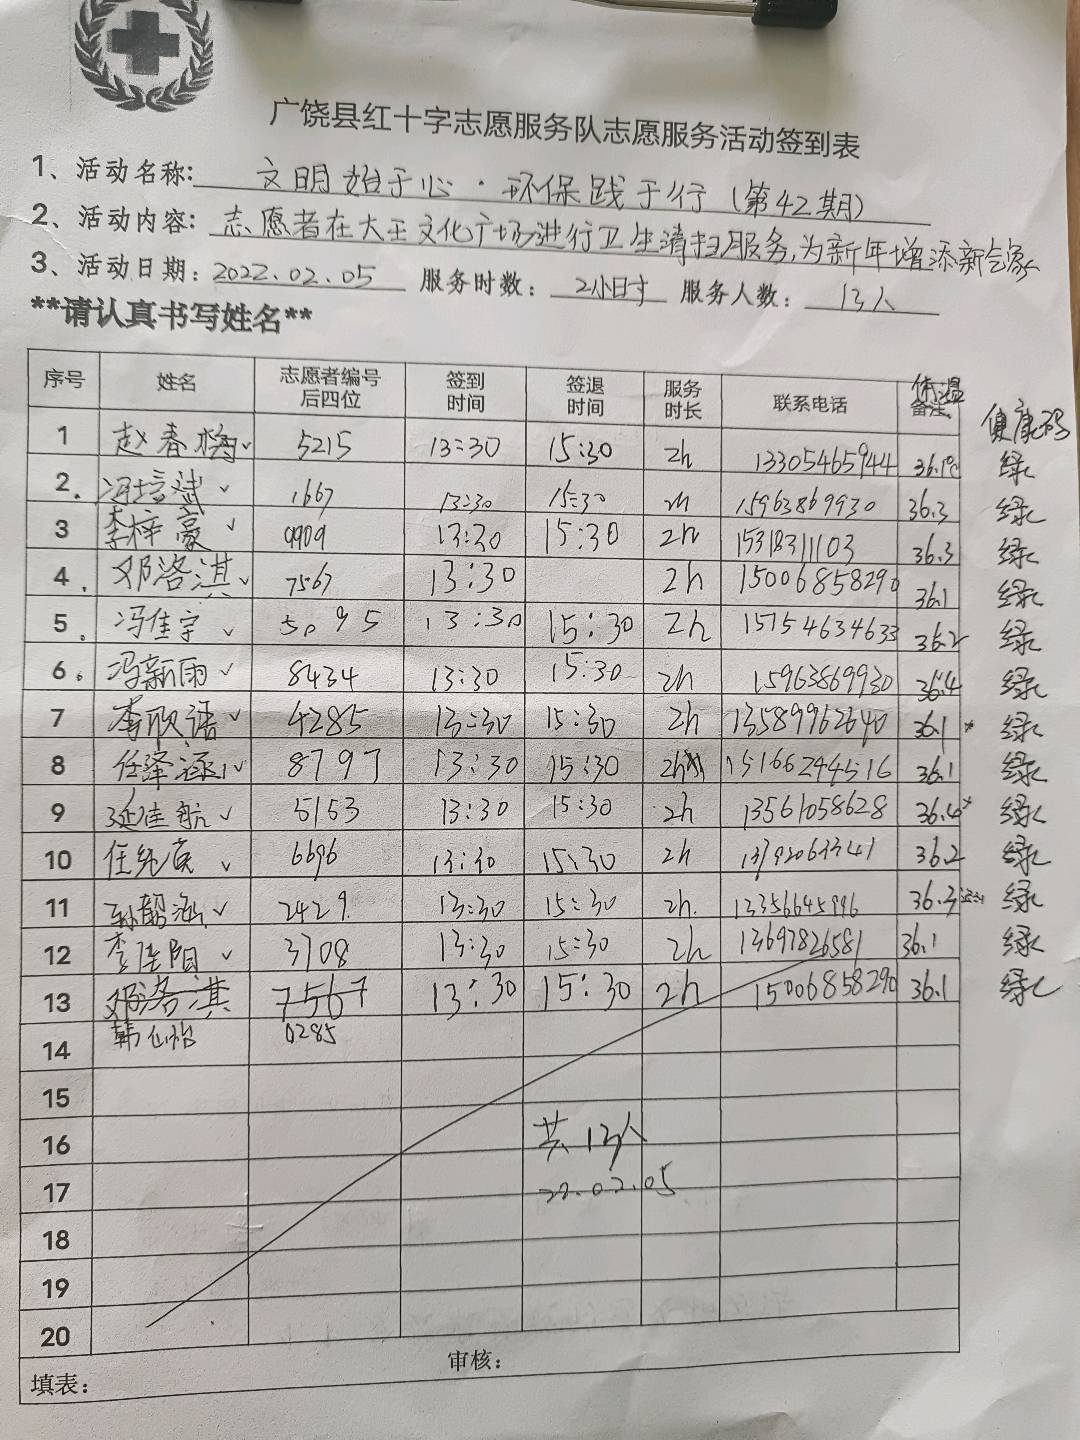 广饶县红十字志愿服务队志愿服务活动签到表
1、活动名称: 文明始于心·环保践于行(第42期)
2、活动内容: 志愿者在大王文化广场进行卫生清扫服务,为新年增添新气象
3、活动日期: 2022.02.05 服务时数: 2小时 服务人数: 13人
**请认真书写姓名**
序号 姓名 志愿者编号后四位 签到时间 签退时间 服务时长 联系电话 体温 备注 健康码
1 赵春梅 5215 13:30 15:30 2h 13305465944 36.1℃ 绿
2 冯培斌 1667 13:30 15:30 2h 15963869930 36.3 绿
3 李梓豪 9909 13:30 15:30 2h 15318311103 36.3 绿
4 邓洛淇 7567 13:30 2h 15006858290 36.1 绿
5 冯佳宇 5095 13:30 15:30 2h 15754634633 36.2 绿
6 冯新雨 8434 13:30 15:30 2h 15963869930 36.4 绿
7 李欣语 4285 13:30 15:30 2h 13589962640 36.1 绿
8 任泽 8797 13:30 15:30 2h 15166244516 36.1 绿
9 延佳航 5153 13:30 15:30 2h 13561058628 36.4 绿
10 任 6696 13:30 15:30 2h 36.2 绿
11 孙韶涵 2429 13:30 15:30 2h. 13356645996 36.3 绿
12 李佳阳 3708 13:30 15:30 2h 13697826581 36.1 绿
13 邓洛淇 7567 13:30 15:30 2h 15006858290 36.1 绿
14 韩心怡 0285
15
16 共13人
17 22.02.05
18
19
20
填表: 审核: